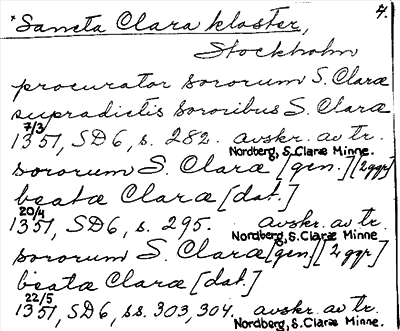 *Sancta Clara kloster, 7.
Stockholm
procurator sororum S. Claræ
supradictis sororibus S. Claræ
7/3
1351, SD6, s. 282. avskr. av tr.
Nordberg, S. Claræ Minne.
sororum S. Claræ [gen.] [2 ggr]
beatæ Claræ [dat.]
20/4
1351, SD6, s. 295. avskr. av tr.
Nordberg, S. Claræ Minne
sororum S. Claræ [gen.] [2 ggr]
beatæ Claræ [dat.]
22/5
1351, SD6, ss. 303, 304. avskr. av tr.
Nordberg, S. Claræ Minne.